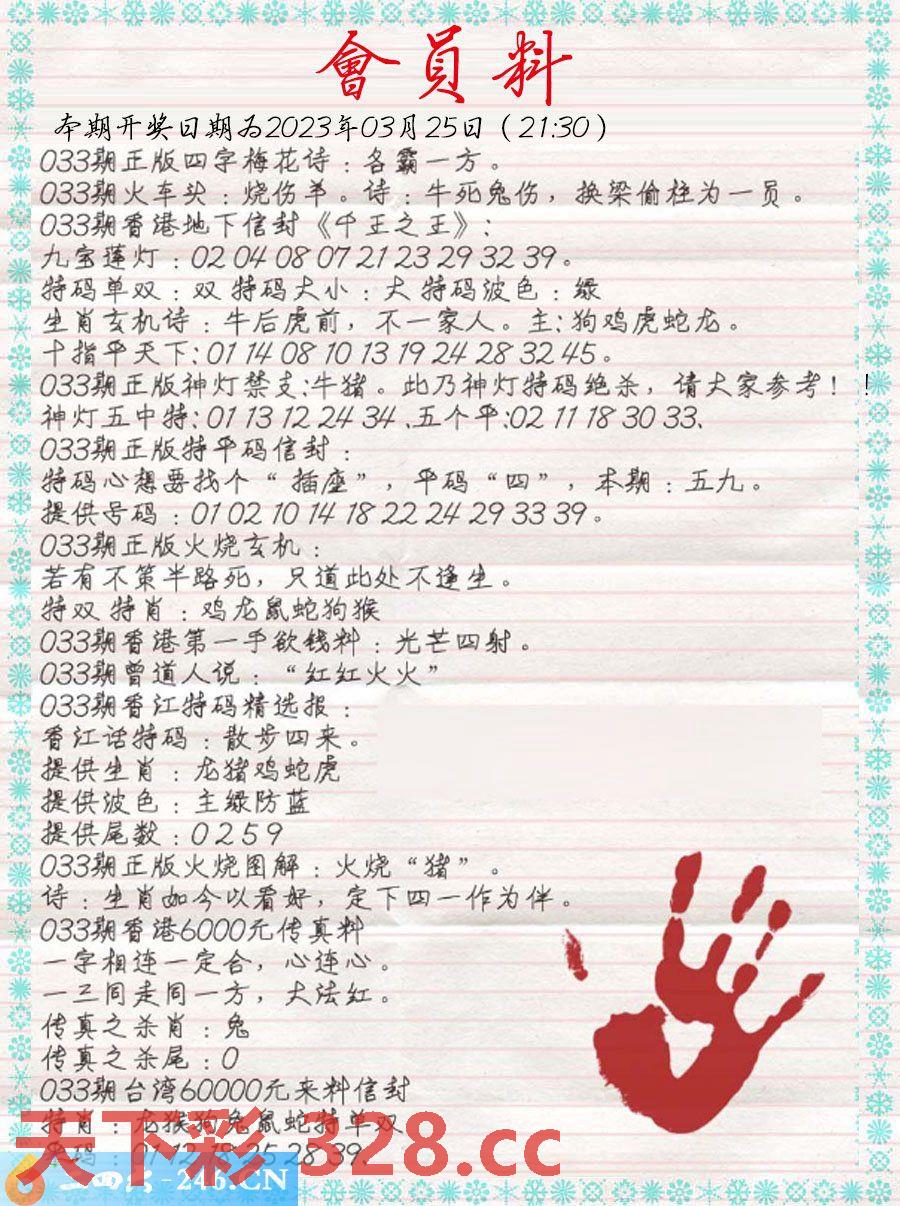 會員料
本期开奖日期为2023年03月25日（21:30）
033期正版四字梅花诗：各霸一方。
033期火车头：烧伤羊。诗：牛死兔伤，换梁偷柱为一员。
033期香港地下信封《千王之王》：
九宝莲灯：02 04 08 07 21 23 29 32 39。
特码单双：双 特码大小：大 特码波色：绿
生肖玄机诗：牛后虎前，不一家人。主：狗鸡虎蛇龙。
十指平天下：01 14 08 10 13 19 24 28 32 45。
033期正版神灯禁支：牛猪。此乃神灯特码绝杀，请大家参考！！
神灯五中特：01 13 12 24 34、五个平：02 11 18 30 33、
033期正版特平码信封：
特码心想要找个“插座”，平码“四”，本期：五九。
提供号码：01 02 10 14 18 22 24 29 33 39。
033期正版火烧玄机：
若有不策半路死，只道此处不逢生。
特双 特肖：鸡龙鼠蛇狗猴
033期香港第一手欲钱料：光芒四射。
033期曾道人说：“红红火火”
033期香江特码精选报：
香江话特码：散步四来。
提供生肖：龙猪鸡蛇虎
提供波色：主绿防蓝
提供尾数：0 2 5 9
033期正版火烧图解：火烧“猪”。
诗：生肖如今以看好，定下四一作为伴。
033期香港6000元传真料
一字相连一定合，心连心。
一三同走同一方，大法红。
传真之杀肖：兔
传真之杀尾：0
033期台湾60000元来料信封
特肖：龙猴狗兔鼠蛇特单双
01 12 18 25 28 39
天下彩 328.cc
二四六-246.CN